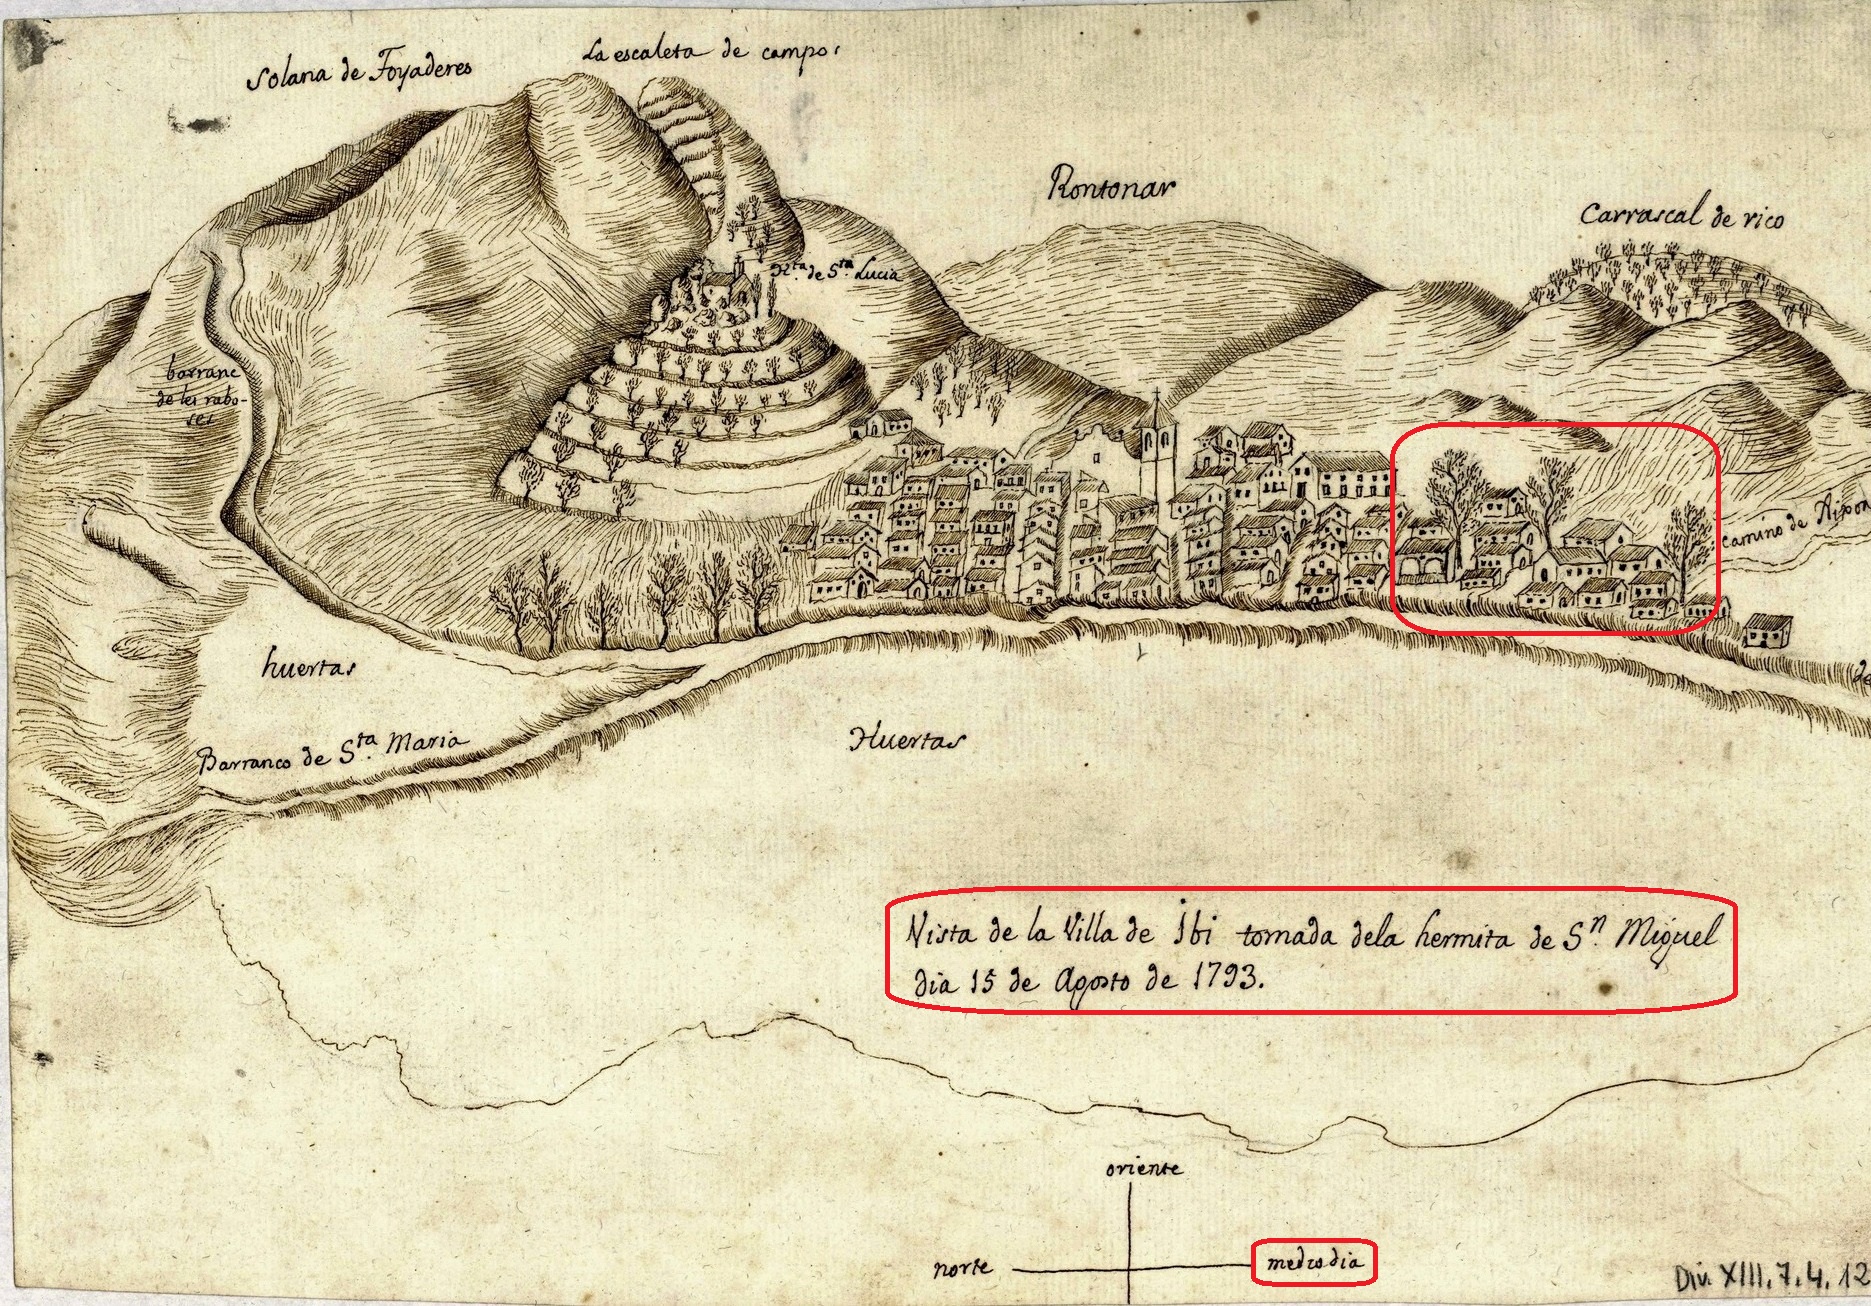 La escaleta de campos
Solana de Foyaderes
Rontonar
Carrascal de rico
Hta. de Sta. Lucia
barranc
de les rabo-
ses
camino de
huertas
Huertas
Barranco de Sta. Maria
Vista de la Villa de Ibi tomada dela hermita de Sn. Miguel
dia 15 de Agosto de 1793.
oriente
norte
medio dia
Div. XIII. 7. 4. 12